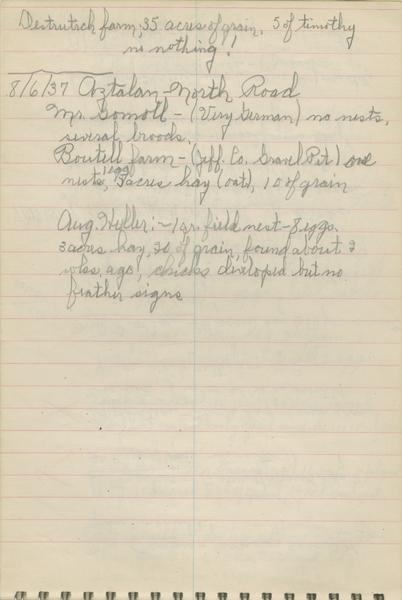 farm, 35 acres of grain, 5 of timothy
no nothing!
8/6/37 Aztalan - North Road
Mr. Gomoll - (Very German) no nests,
several broods.
Boutell farm - (Jeff. Co. Gravel Pit) one
nests, 1 egg 3 acres hay (oat), 10 of grain
Aug. Heller: - 1 gr. field nest - 8 eggs.
3 acres hay, 20 of grain, found about 2
wks. ago, chicks developed but no
feather signs